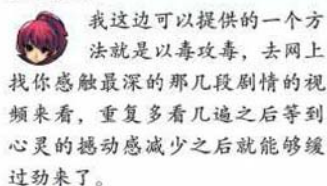 我这边可以提供的一个方
法就是以毒攻毒，去网上
找你感触最深的那几段剧情的视
频来看，重复多看几遍之后等到
心灵的撼动感减少之后就能够缓
过劲来了。